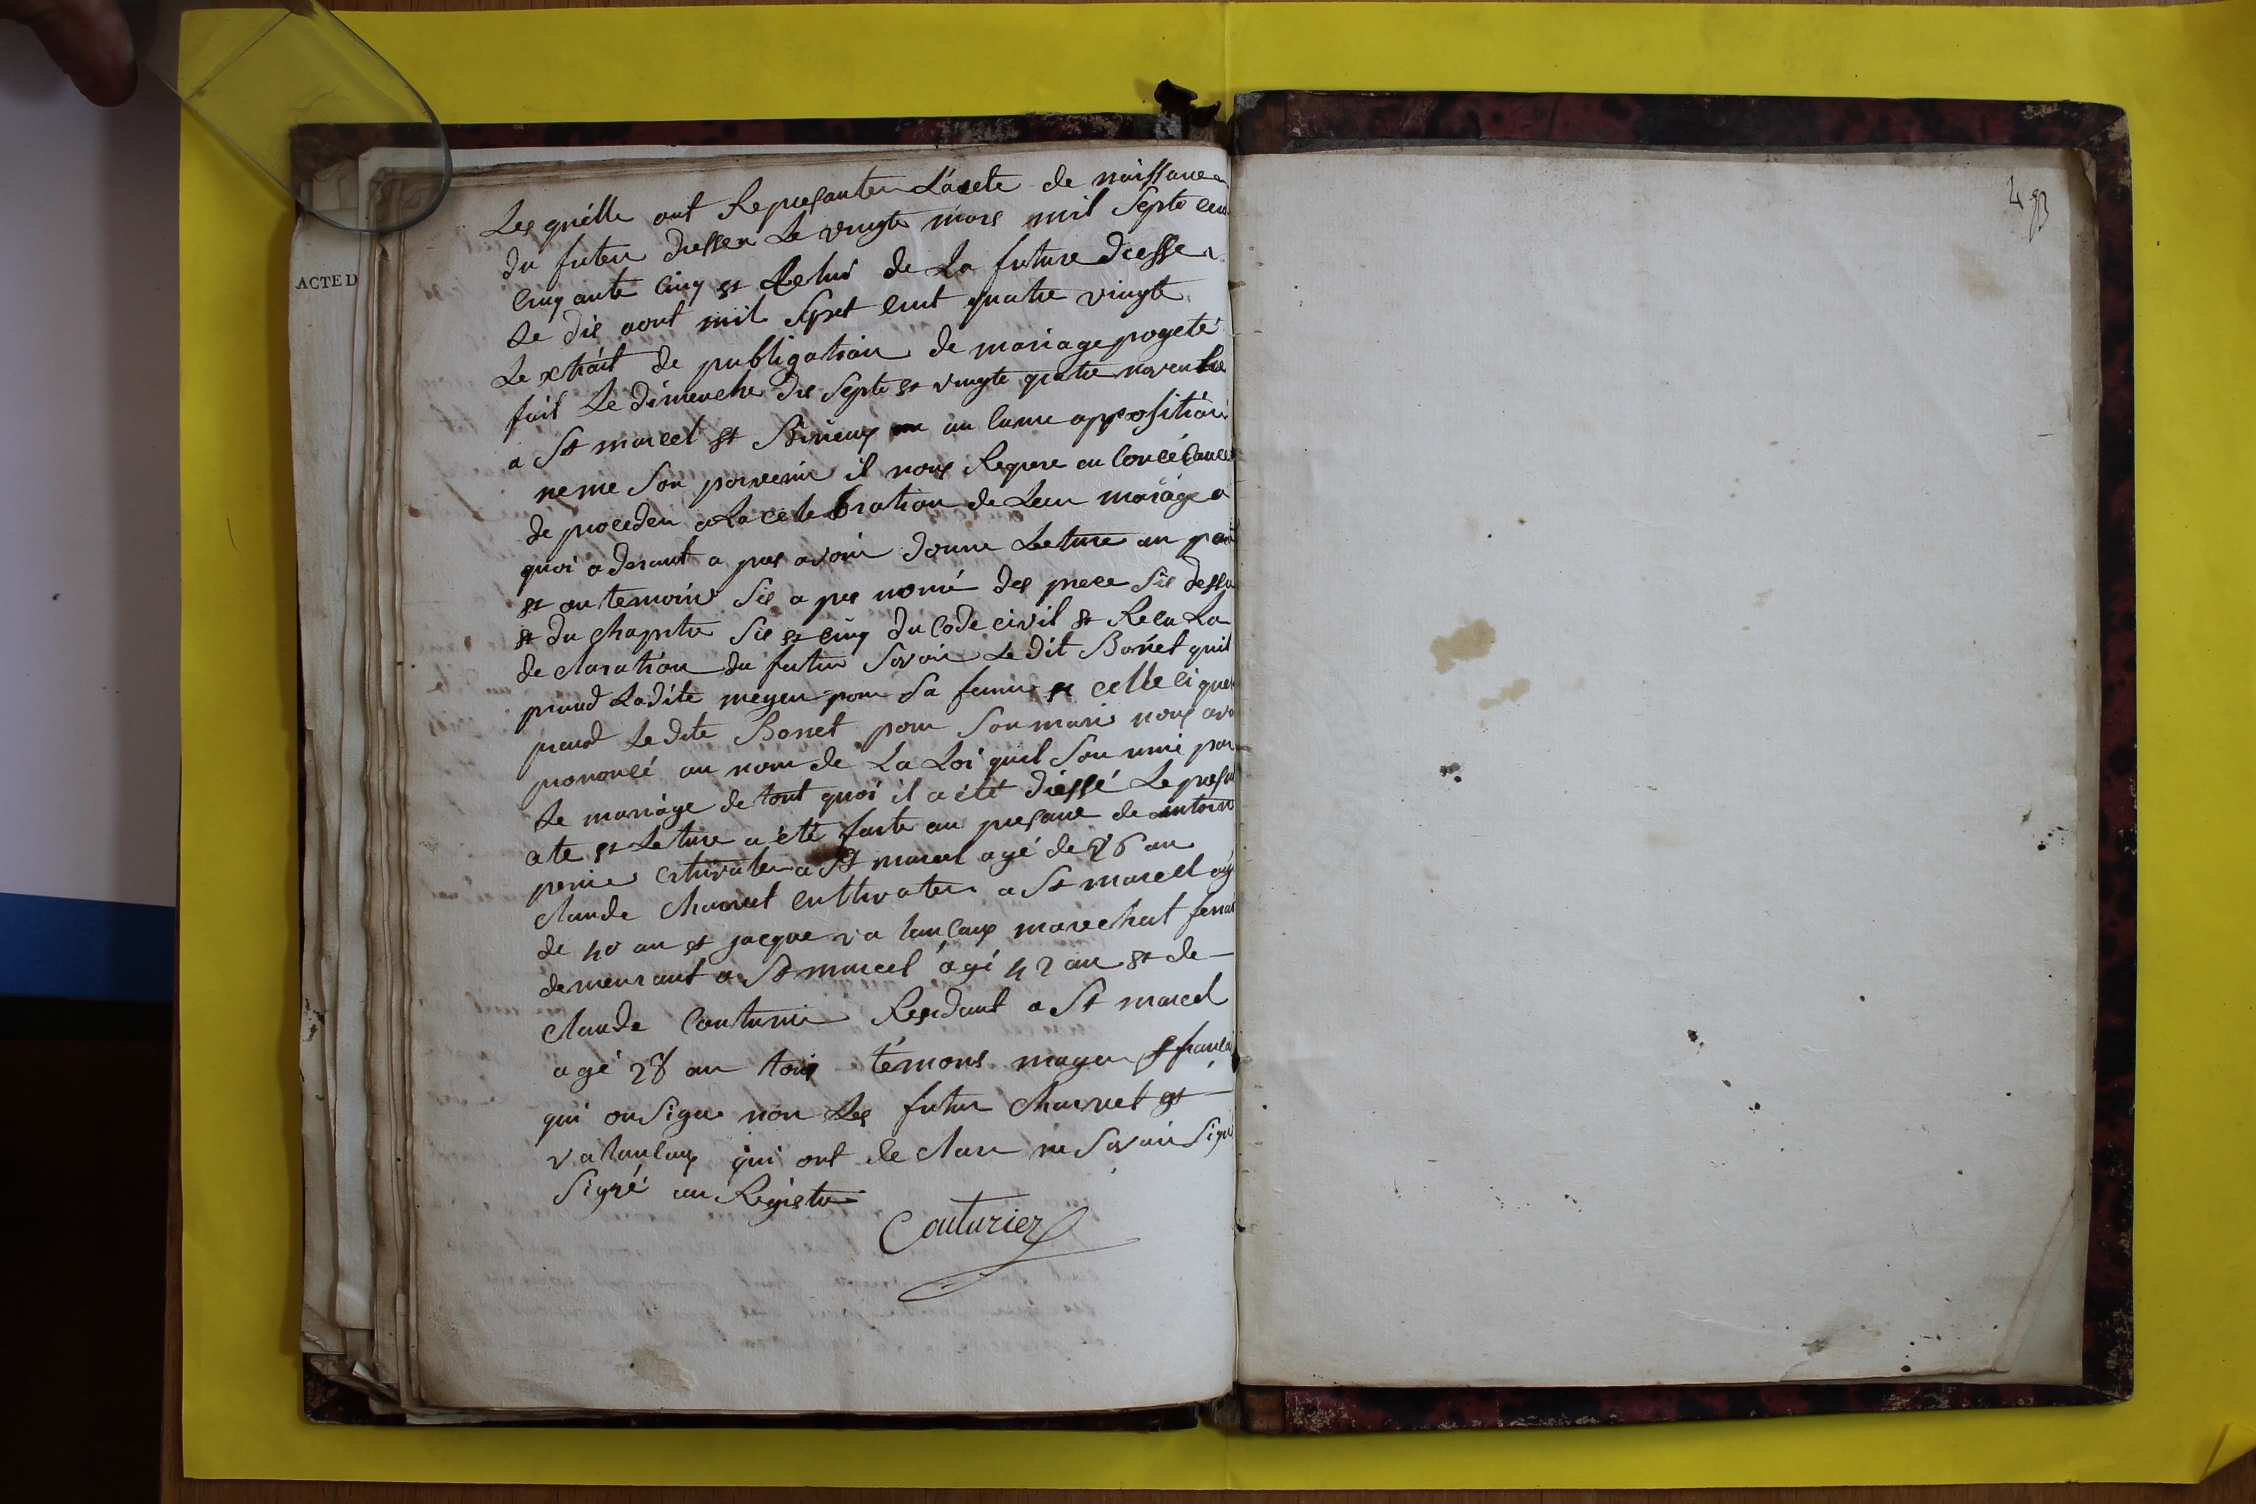 Les quélle ont Represanter L'acte de naissance
du futur dresser Le vingte mars mil Septe cen
cinq ante cinq et Celui de La future dresse
Le dis aout mil Sept cent quatre vingte
Le xtrait de publigation de mariage progeté
fait Le dimenche dis Septe et vingte quatre novembre
a St marcel et au cune apposition
ne me Son parvenir il nous Requere en
de proceder a La cele bration de Leur mariage a
quoi aderant a pres avoir donne Leture au
et au temoins Sis a pres nomé des piece Sis dessu
et du chapitre Sis et cinq du Code civil et Recu La
de claration du futur Savoir Le dit Bonet quil
prand Ladite meyer pour Sa femme et celle ci que
prand Le dite Bonet pour Son mari nous avo
prononcé au nom de La Loi quil Son unie par
Le mariage de tout quoi il a été dressé Le presen
ate et Leture a été faite au presane de antoine
cltivateur a St marcel agé de 56 an
claude Charvet cultivateur a St marcel agé
de 40 an et jacque va lancaux marechat ferran
demeurant a St marcel agé 42 an et de
claude Couturie Residant a St marcel
agé 28 an tous témons mageur francai
qui on Signe non Les futur Charvet et
valancaux qui ont de clare ne Savoir Signé
Signé au Registre
Couturier
ACTE D